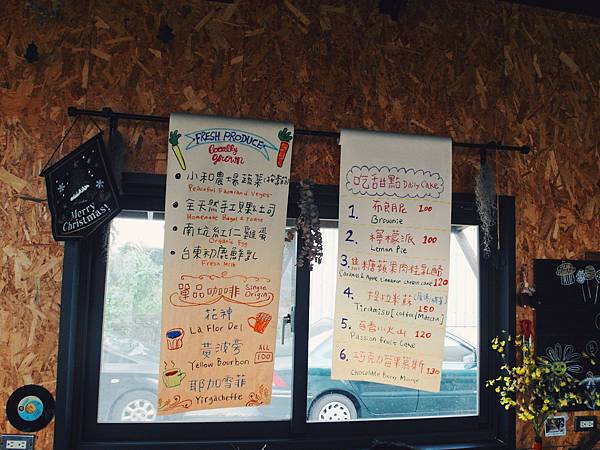 Merry Christmas!
FRESH PRODUCE
locally grown
小和農場蔬菜
Peaceful Farmland Veges
全天然手工貝果&吐司
Homemade Bagel & Toast
南坑紅仁雞蛋
Organic Egg
台東初鹿鮮乳
Fresh Milk
單品咖啡 Single Origin
花神
La Flor Del
黃波旁
Yellow Bourbon
ALL 100
耶加雪菲
Yirgacheffe
吃甜點 Daily Cake
1. 布朗尼 100
Brownie
2. 檸檬派 100
Lemon Pie
3. 焦糖蘋果肉桂乳酪
Caramel & Apple Cinnamon cheese cake 120
4. 提拉米蘇
150
Tiramisu [coffee/Matcha]
5. 百香小火山 120
Passion Fruit Cake
6. 巧克力莓果慕斯
Chocolate Berry Mousse 130